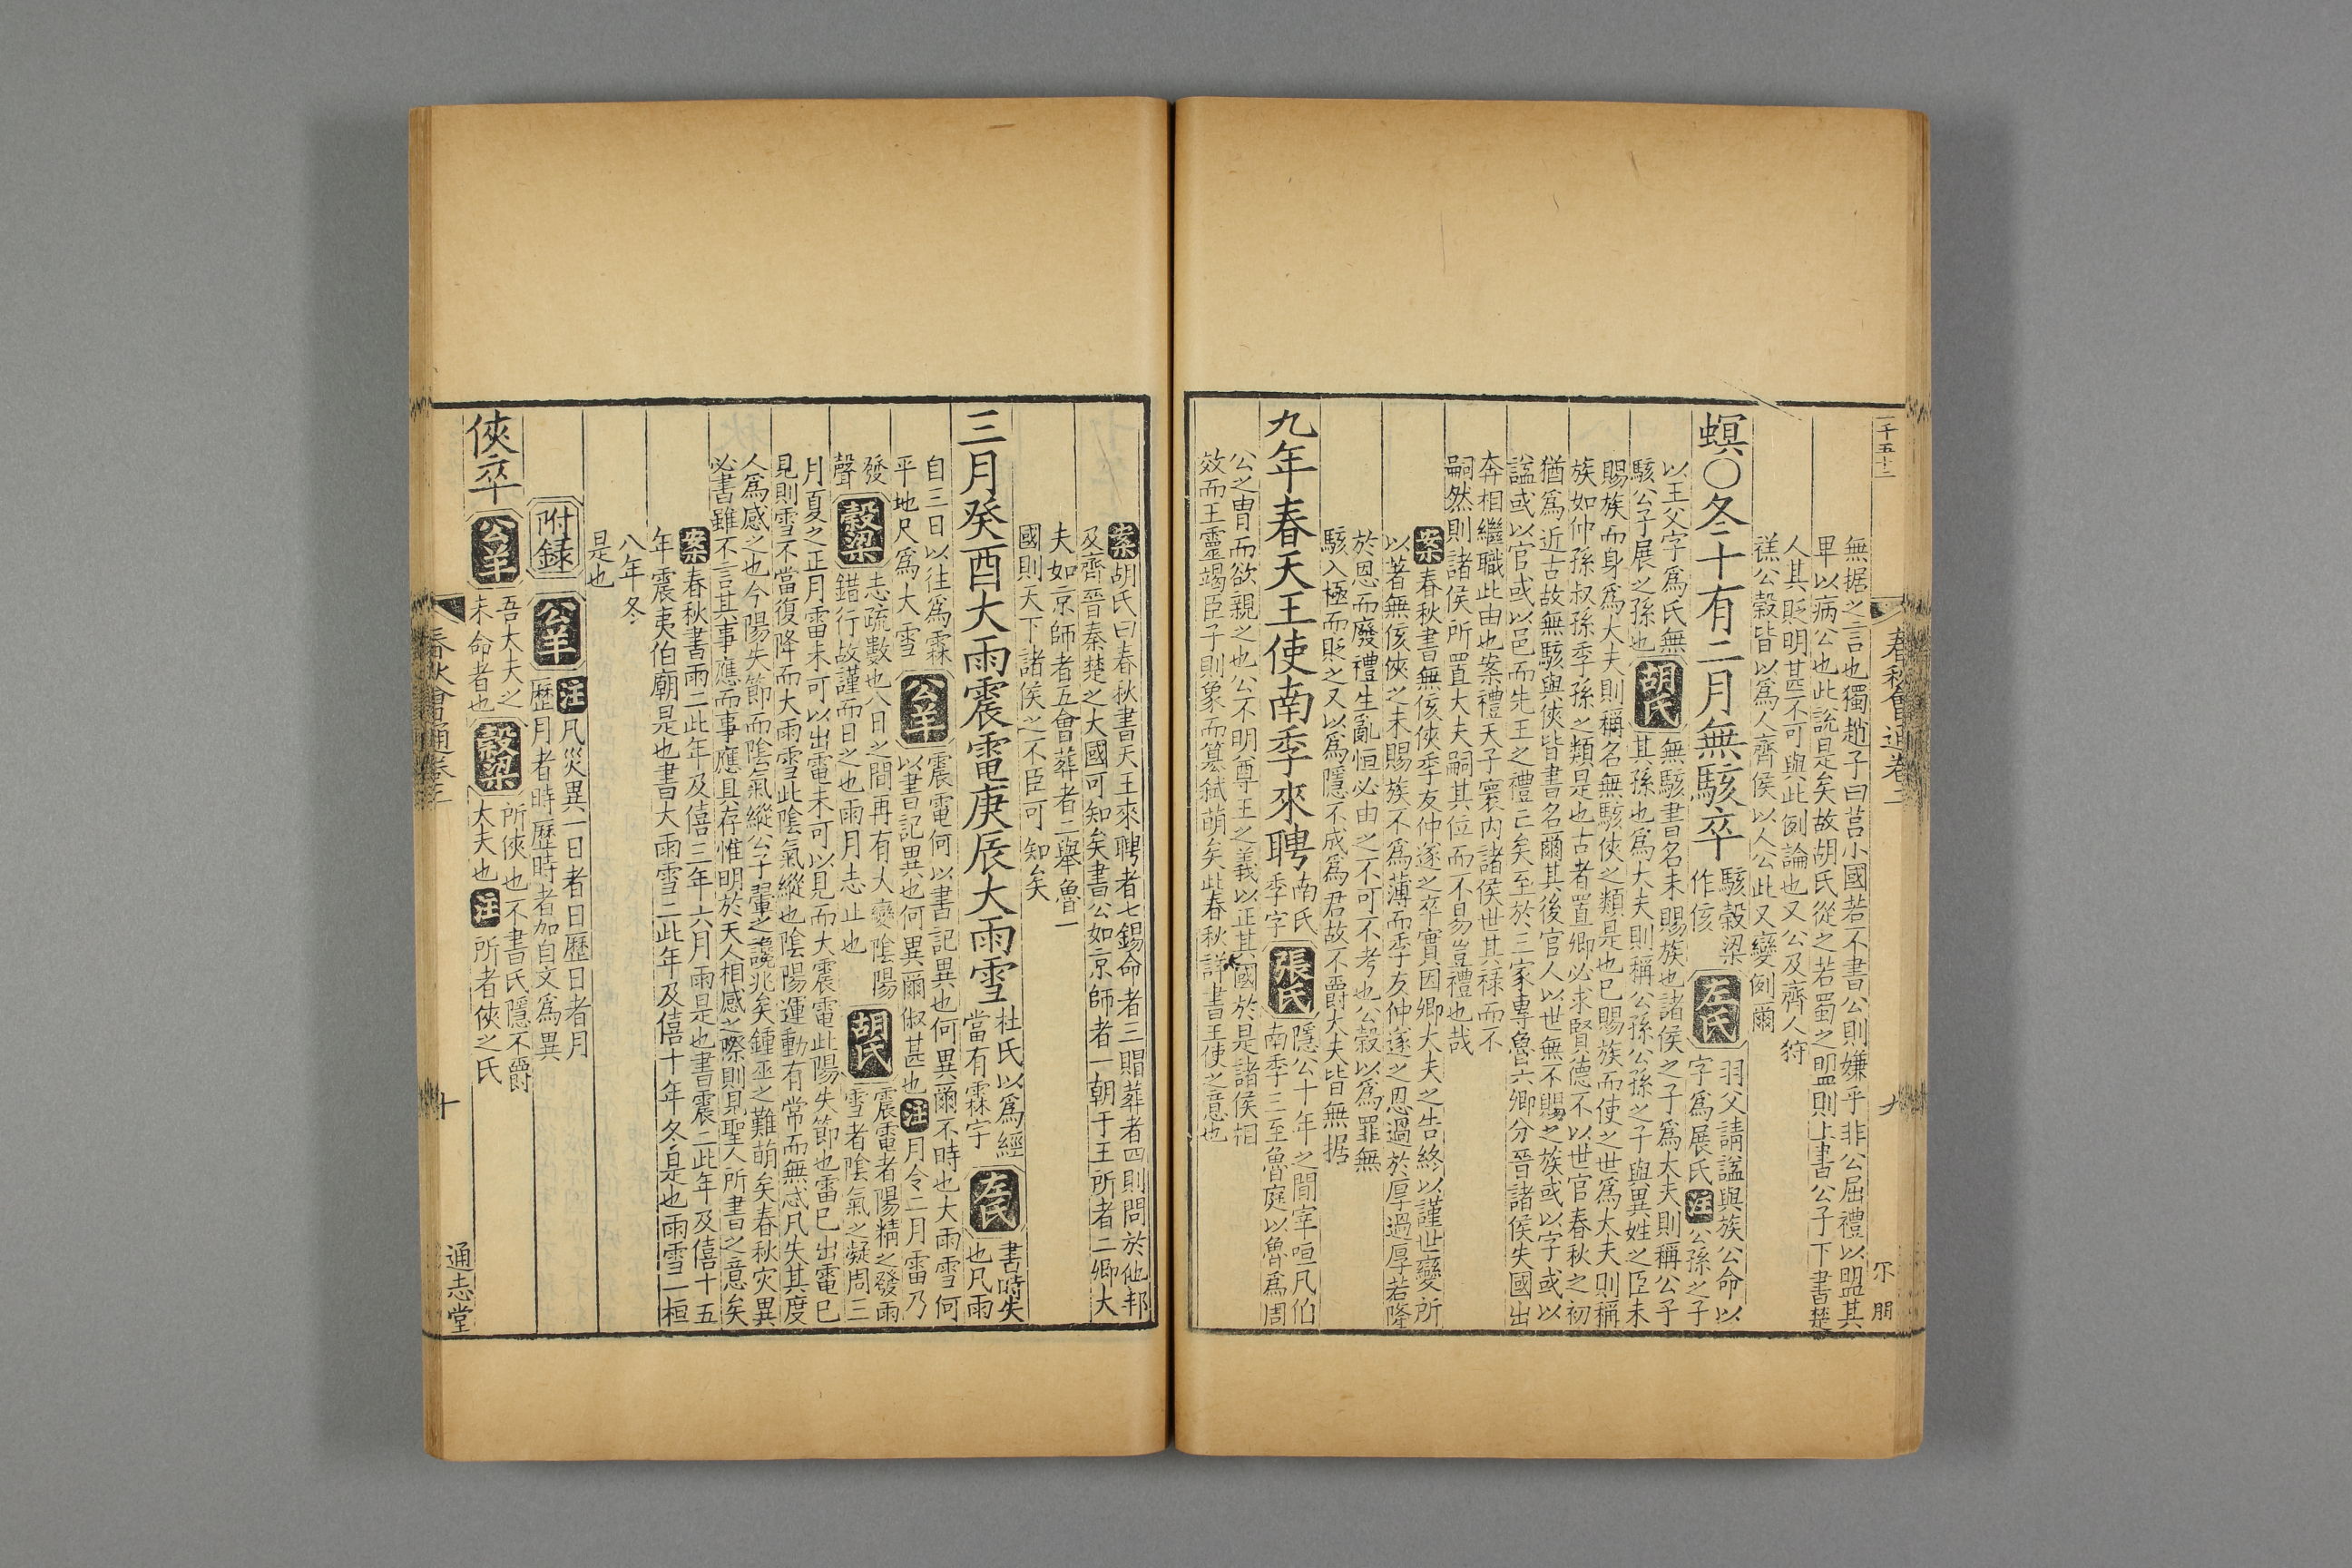 一千五十二
春秋會通卷三
九
朋
無据之言也獨趙子曰莒小國若不書公則嫌乎非公屈禮以盟其
畢以病公也此說是矣故胡氏從之若蜀之盟則上書公子下書楚
人其貶明甚不可與此例論也又公及齊人狩
禚公穀皆以為人齊侯以人公此又變例爾
螟〇冬十有二月無駭卒
駭穀梁
作侅
左氏
羽父請謚與族公命以
字為展氏
注
公孫之子
以王父字為氏無
駭公子展之孫也
胡氏
無駭書名未賜族也諸侯之子為大夫則稱公子
其孫也為大夫則稱公孫公孫之子與異姓之臣未
賜族而身為大夫則稱名無駭俠之類是也已賜族而使之世為大夫則稱
族如仲孫叔孫季孫之類是也古者置卿必求賢德不以世官春秋之初
猶為近古故無駭與俠皆書名爾其後官人以世無不賜之族或以字或以
謚或以官或以邑而先王之禮亡矣至於三家專魯六卿分晉諸侯失國出
奔相繼職此由也案禮天子寰内諸侯世其祿而不
嗣然則諸侯所置大夫嗣其位而不易豈禮也哉
案
春秋書無侅俠季友仲遂之卒實因卿大夫之告終以謹世變所
以著無侅俠之未賜族不為薄而季友仲遂之恩過於厚過厚若隆
於恩而廢禮生亂恒必由之不可不考也公穀以為罪無
駭入極而貶之又以為隱不成為君故不爵大夫皆無据
九年春天王使南季來聘
南氏
季字
張氏
隱公十年之間宰咺凡伯
南季三至魯庭以魯為周
公之冑而欲親之也公不明尊王之義以正其國於是諸侯相
效而王靈竭臣子則象而簒弑萌矣此春秋詳書王使之意也
案
胡氏曰春秋書天王來聘者七錫命者三賵葬者四則問於他邦
及齊晉秦楚之大國可知矣書公如京師者一朝于王所者二卿大
夫如京師者五會葬者二舉魯一
國則天下諸侯之不臣可知矣
三月癸酉大雨震電庚辰大雨雪
杜氏以為經
當有霖字
左氏
書時失
也凡雨
自三日以往為霖
平地尺為大雪
公羊
震電何以書記異也何異爾不時也大雨雪何
以書記異也何異爾俶甚也
注
月令二月雷乃
發
聲
穀梁
志疏數也八日之間再有大變陰陽
錯行故謹而日之也雨月志止也
胡氏
震電者陽精之發雨
雪者陰氣之凝周三
月夏之正月雷未可以出電未可以見而大震電此陽失節也雷已出電已
見則雪不當復降而大雨雪此陰氣縱也陰陽運動有常而無忒凡失其度
人為感之也今陽失節而陰氣縱公子翬之讒兆矣鍾巫之難萌矣春秋灾異
必書雖不言其事應而事應具存惟明於天人相感之際則見聖人所書之意矣
案
春秋書雨二此年及僖三年六月雨是也書震二此年及僖十五
年震夷伯廟是也書大雨雪二此年及僖十年冬是也雨雪二桓
八年冬
是也
附録
公羊
注
凡災異一日者日歷日者月
歷月者時歷時者加自文為異
俠卒
公羊
吾大夫之
未命者也
穀梁
所俠也不書氏隱不爵
大夫也
注
所者俠之氏
春秋會通卷三
十
通志堂